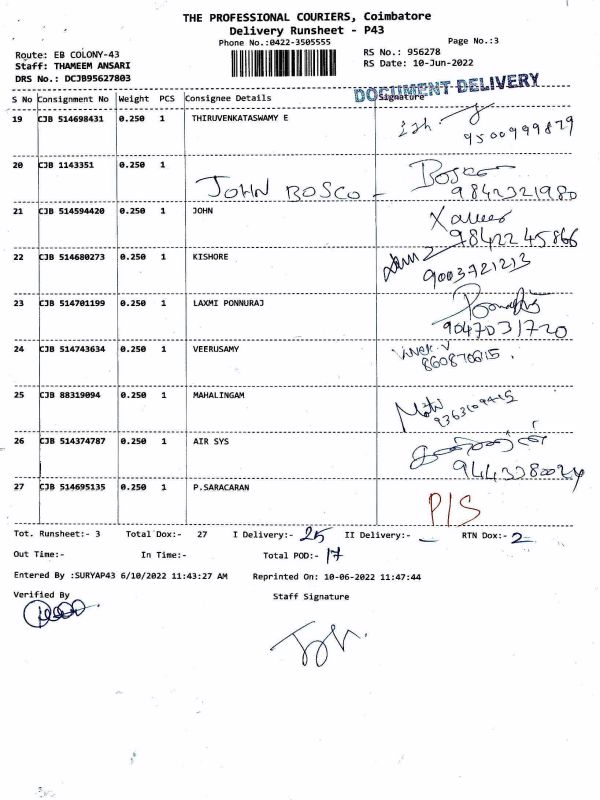 THE PROFESSIONAL COURIERS, Coimbatore
Delivery Runsheet - P43
Phone No.:0422-3505555
Page No.:3
Route: EB COLONY-43
RS No.: 956278
Staff: THAMEEM ANSARI
RS Date: 10-Jun-2022
DRS No.: DCJB95627803
DOCUMENT DELIVERY
S No Consignment No Weight PCS Consignee Details Signature
19 CJB 514698431 0.250 1 THIRUVENKATASWAMY E
9500999879
20 CJB 1143351 0.250 1
JOHN BOSCO - Bosco
9842321980
21 CJB 514594420 0.250 1 JOHN
9842245866
22 CJB 514680273 0.250 1 KISHORE
9003721213
23 CJB 514701199 0.250 1 LAXMI PONNURAJ
9047031720
24 CJB 514743634 0.250 1 VEERUSAMY
Vivek.V
25 CJB 88319094 0.250 1 MAHALINGAM
9363109415
26 CJB 514374787 0.250 1 AIR SYS
27 CJB 514695135 0.250 1 P.SARACARAN
P/S
Tot. Runsheet:- 3 Total Dox:- 27 I Delivery:- 25 II Delivery:- - RTN Dox:- 2
Out Time:- In Time:- Total POD:- 17
Entered By :SURYAP43 6/10/2022 11:43:27 AM Reprinted On: 10-06-2022 11:47:44
Verified By Staff Signature